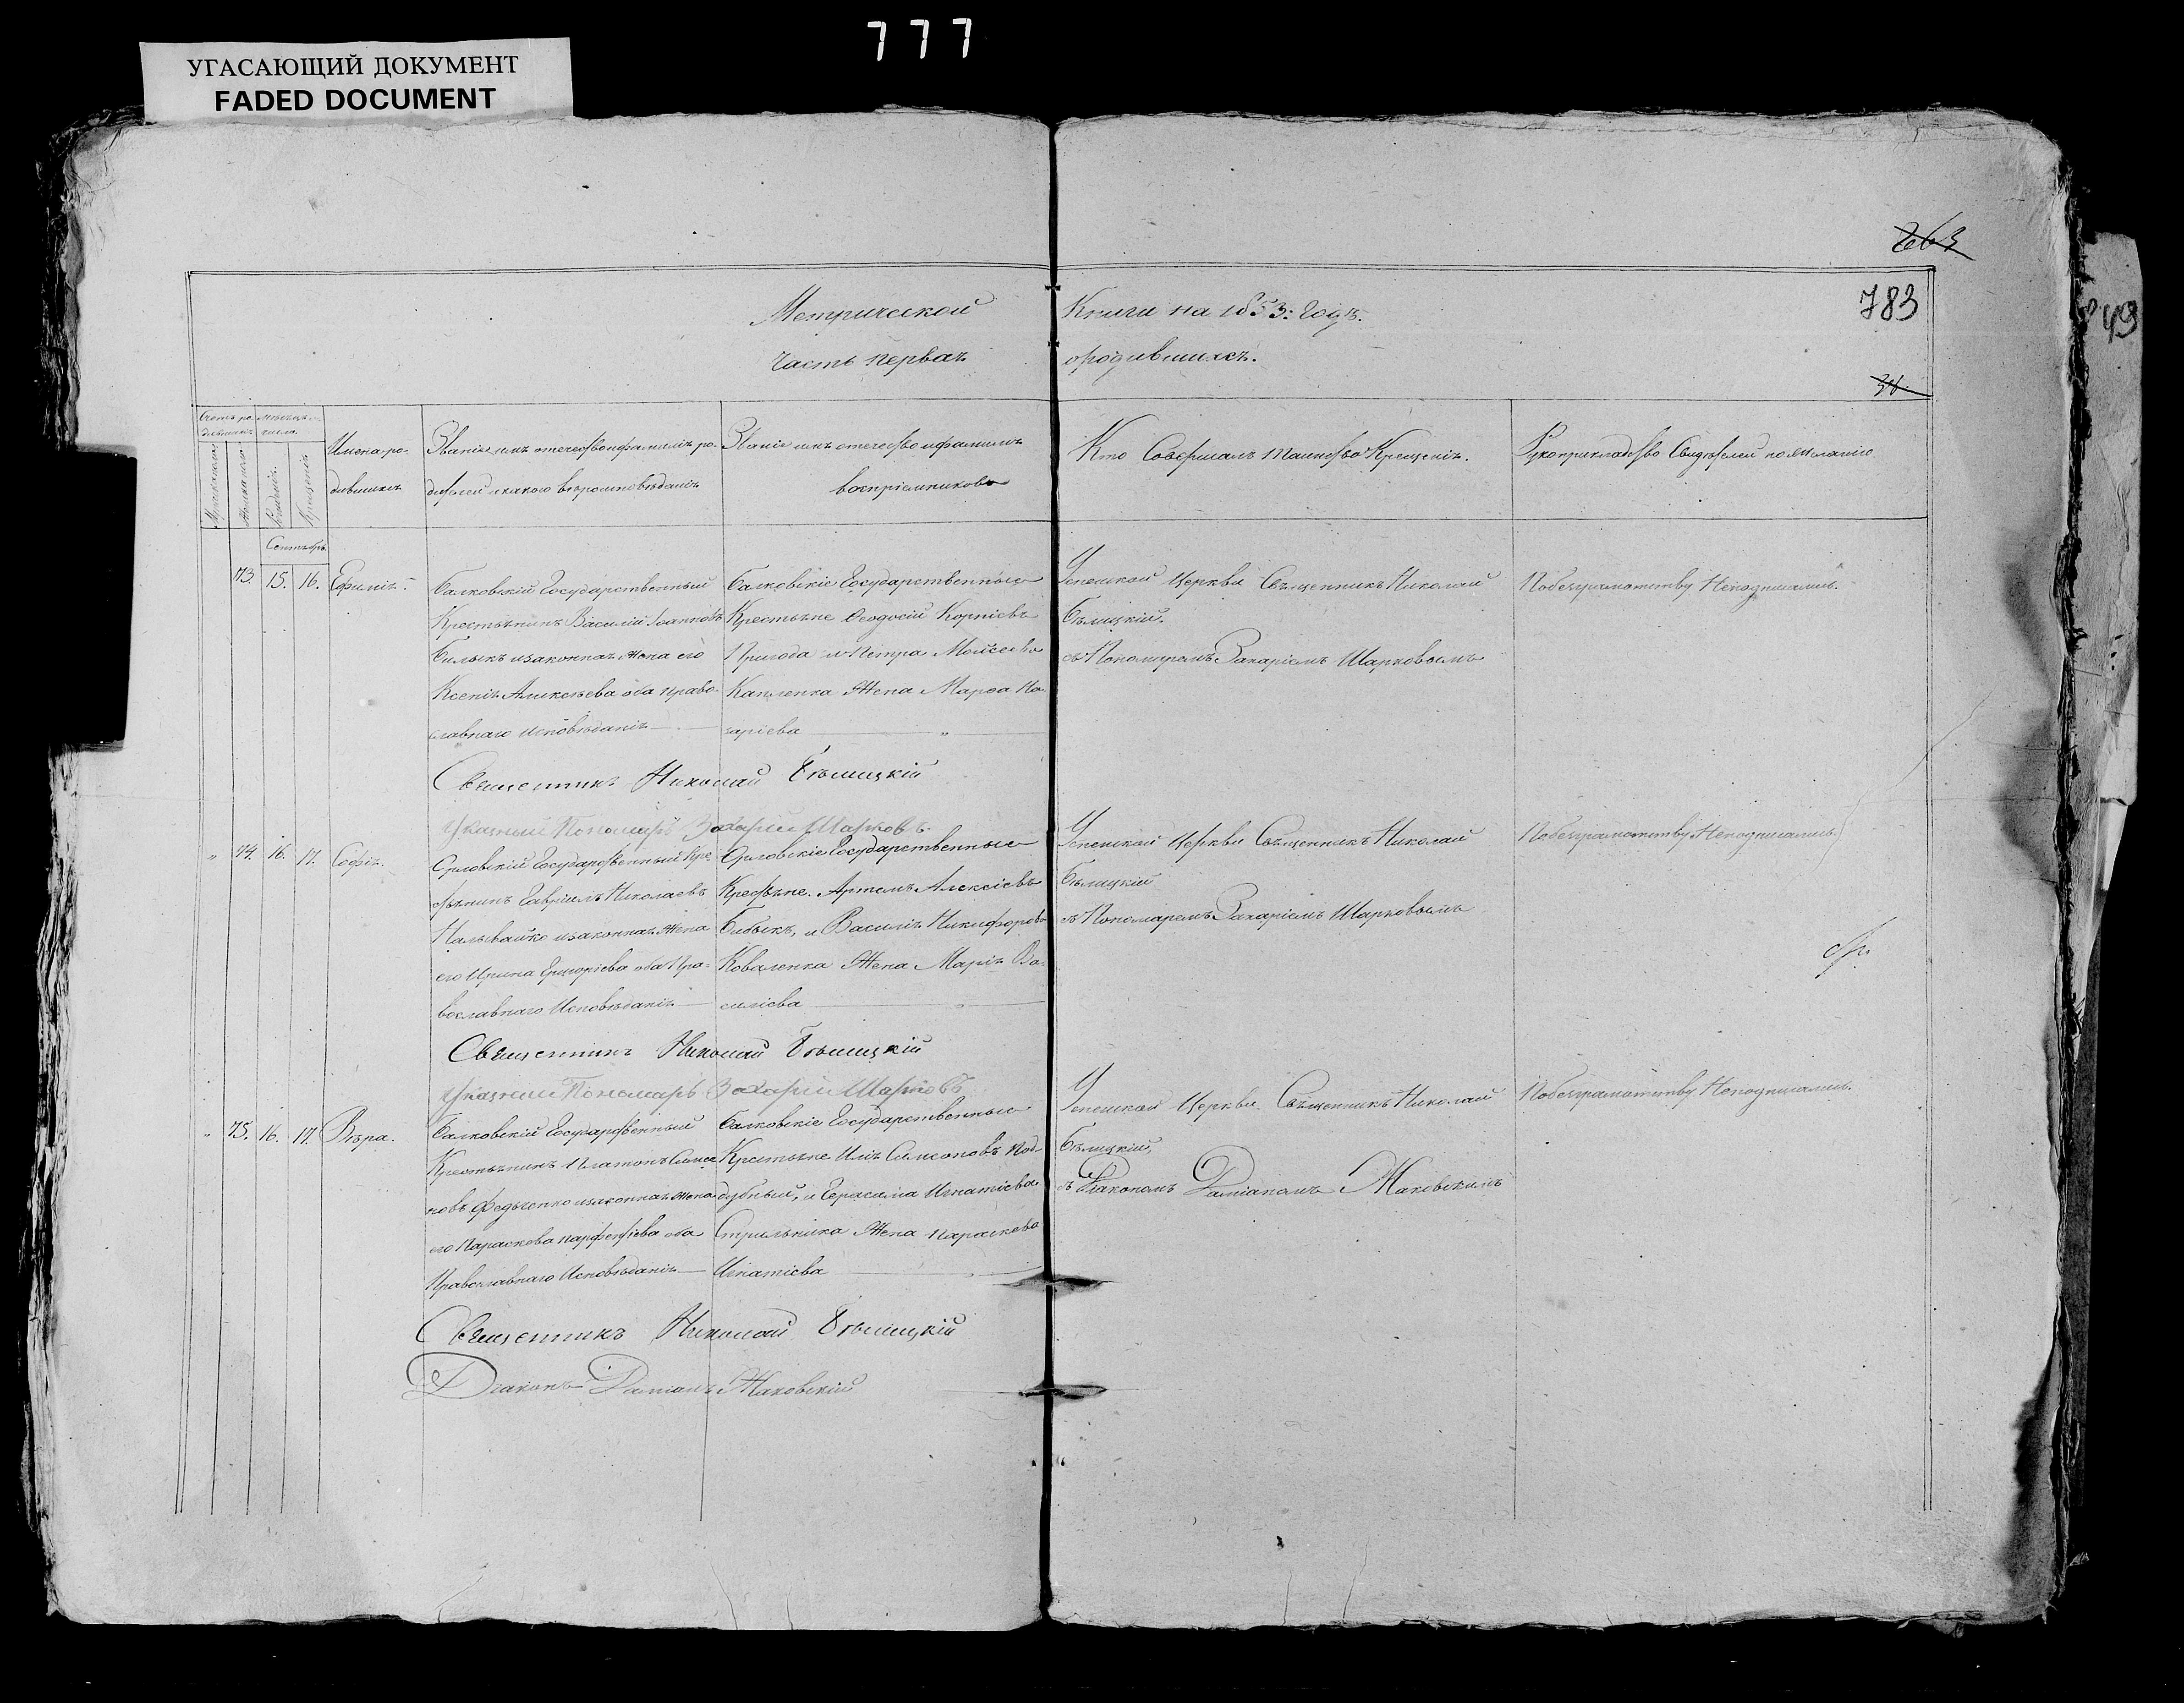 777
УГАСАЮЩИЙ ДОКУМЕНТ
FADED DOCUMENT
783
Метрической Книги на 1853: Годъ.
Часть первая о родившихся.
Имена ро-
дившихся
Званіе имя отечество и фамилія ро-
дителей и какого вѣроисповѣданія
Званіе имя отечество и фамилія
воспріемниковъ
Кто Совершалъ таинство Крещенія.
Рукоприкладство Свидѣтелей по желанію
Сентябрь
73. 15. 16. Ефимія.
Балковскій Государственный
Крестьянинъ Василій Іоанновъ
Билыкъ и законная жена его
Ксенія Алексѣева оба право-
славнаго исповѣданія
Балковскіе Государственные
Крестьяне Ѳеодосій Корніевъ
Пригода и Петра Моѵсеева
Капленка Жена Марѳа На-
заріева
Успенской Церкви Священникъ Николай
Бѣлицкій.
съ Пономаремъ Захаріемъ Шарковымъ
По безграмотству Неподписались.
Священникъ Николай Бѣлицкій
Указный Пономарь Захарій Шарковъ.
74. 16. 17. Софія.
Орловскій Государственный Кре-
стьянинъ Гавріилъ Николаевъ
Наливайко и законная жена
его Ирина Григоріева оба Пра-
вославнаго Исповѣданія
Орловскіе Государственные
Крестьяне. Артемъ Алексіевъ
Бибыкъ, и Василія Никифорова
Коваленка Жена Марія Ва-
силіева
Успенской Церкви Священникъ Николай
Бѣлицкій
съ Пономаремъ Захаріемъ Шарковымъ
По безграмотству Неподписались.
Священникъ Николай Бѣлицкій
Указный Пономарь Захарій Шарковъ
75. 16. 17. Вѣра.
Балковскій Государственный
Крестьянинъ Платонъ Симео-
новъ Федченко и законная жена
его Параскева Парфентіева оба
Православнаго Исповѣданія
Балковскіе Государственные
Крестьяне Илія Симеоновъ Под-
дубный, и Герасима Игнатіева
Стрильника Жена Параскева
Игнатіева
Успенской Церкви Священникъ Николай
Бѣлицкій,
съ Діакономъ Даміаномъ Маковскимъ
По безграмотству Неподписались.
Священникъ Николай Бѣлицкій
Діаконъ Даміанъ Маковскій